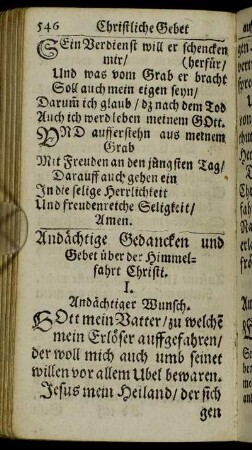 546 Christliche Gebet
SEin Verdienst will er schencken
mir/ (herfür/
Und was vom Grab er bracht
Soll auch mein eigen seyn/
Darum̃ ich glaub/ dz nach dem Tod
Auch ich werd leben meinem GOtt.
UND aufferstehn aus meinem
Grab
Mit Freuden an den jüngsten Tag/
Darauff auch gehen ein
In die selige Herrlichkeit
Und freudenreiche Seligkeit/
Amen.
Andächtige Gedancken und
Gebet über der Himmel-
fahrt Christi.
I.
Andächtiger Wunsch.
GOtt mein Vatter/ zu welchẽ
mein Erlöser auffgefahren/
der woll mich auch umb seinet
willen vor allem Ubel bewaren.
Jesus mein Heiland/ der sich
gen